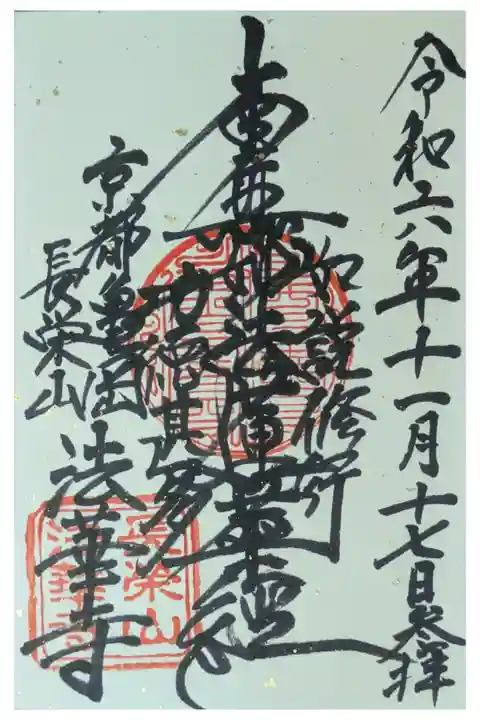 令和六年十一月十七日参拝
如説修行
南無妙法蓮華経
其徳
京都亀岡
長栄山
法華寺
長栄山
法華寺